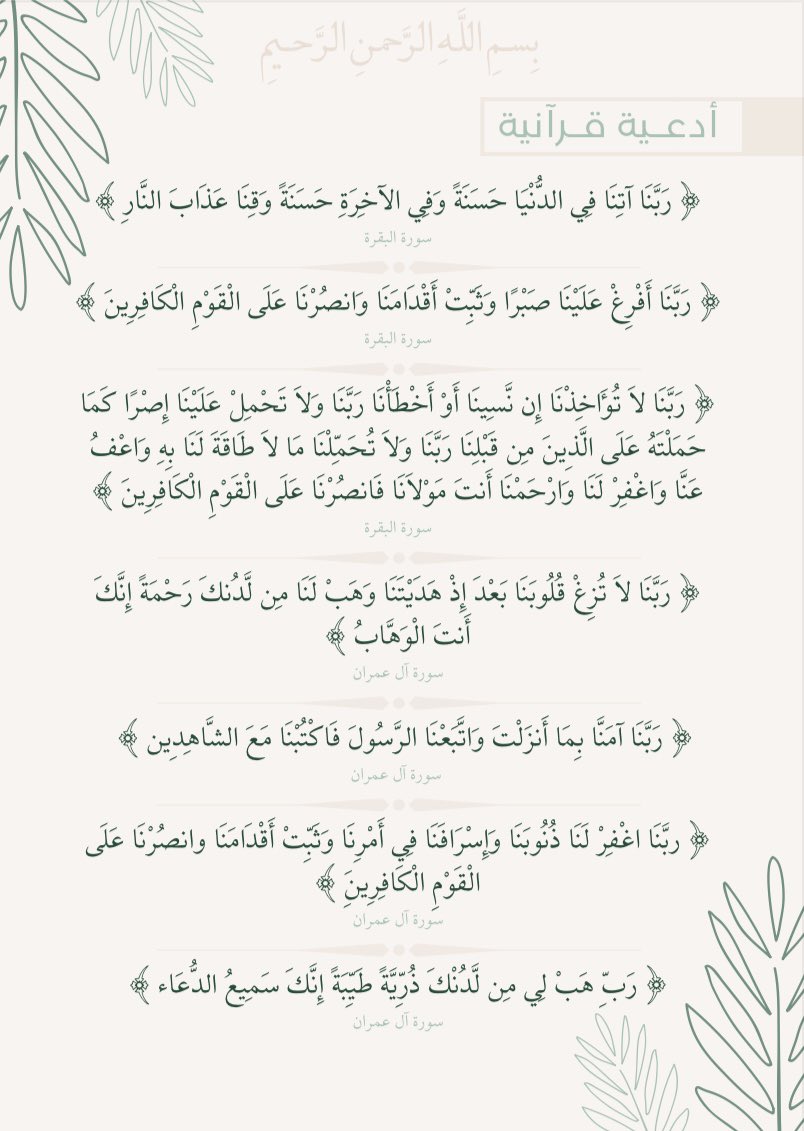 بِسمِ اللَّهِ الرَّحمنِ الرَّحيمِ
أدعية قرآنية
﴿ رَبَّنَا آتِنَا فِي الدُّنْيَا حَسَنَةً وَفِي الآخِرَةِ حَسَنَةً وَقِنَا عَذَابَ النَّارِ ﴾
سورة البقرة
﴿ رَبَّنَا أَفْرِغْ عَلَيْنَا صَبْرًا وَثَبِّتْ أَقْدَامَنَا وَانصُرْنَا عَلَى الْقَوْمِ الْكَافِرِينَ ﴾
سورة البقرة
﴿ رَبَّنَا لاَ تُؤَاخِذْنَا إِن نَّسِينَا أَوْ أَخْطَأْنَا رَبَّنَا وَلاَ تَحْمِلْ عَلَيْنَا إِصْرًا كَمَا
حَمَلْتَهُ عَلَى الَّذِينَ مِن قَبْلِنَا رَبَّنَا وَلاَ تُحَمِّلْنَا مَا لاَ طَاقَةَ لَنَا بِهِ وَاعْفُ
عَنَّا وَاغْفِرْ لَنَا وَارْحَمْنَا أَنتَ مَوْلاَنَا فَانصُرْنَا عَلَى الْقَوْمِ الْكَافِرِينَ ﴾
سورة البقرة
﴿ رَبَّنَا لاَ تُزِغْ قُلُوبَنَا بَعْدَ إِذْ هَدَيْتَنَا وَهَبْ لَنَا مِن لَّدُنكَ رَحْمَةً إِنَّكَ
أَنتَ الْوَهَّابُ ﴾
سورة آل عمران
﴿ رَبَّنَا آمَنَّا بِمَا أَنزَلْتَ وَاتَّبَعْنَا الرَّسُولَ فَاكْتُبْنَا مَعَ الشَّاهِدِين ﴾
سورة آل عمران
﴿ ربَّنَا اغْفِرْ لَنَا ذُنُوبَنَا وَإِسْرَافَنَا فِي أَمْرِنَا وَثَبِّتْ أَقْدَامَنَا وانصُرْنَا عَلَى
الْقَوْمِ الْكَافِرِينَِ ﴾
سورة آل عمران
﴿ رَبِّ هَبْ لِي مِن لَّدُنْكَ ذُرِّيَّةً طَيِّبَةً إِنَّكَ سَمِيعُ الدُّعَاء ﴾
سورة آل عمران